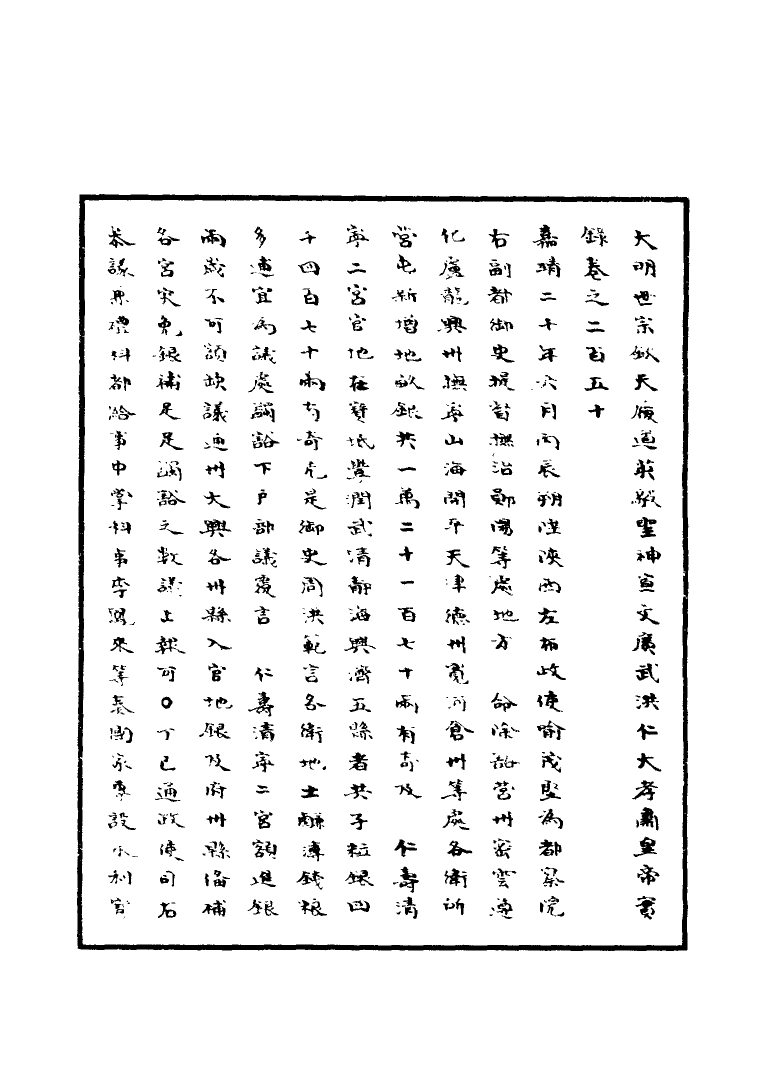 大明世宗欽天履道英毅聖神宣文廣武洪仁大孝肅皇帝實
錄卷之二百五十
嘉靖二十年六月丙辰朔陞陝西左布政使喻茂堅為都察院
右副都御史提督撫治鄖陽等處地方　命除豁營州密雲遵
化盧龍興州撫寧山海開平天津德州寬河倉州等處各衛所
營屯新增地畝銀共一萬二千一百七十兩有奇及　仁壽清
寧二宮官地在寶坻豐潤武清靜海興濟五縣者共子粒銀四
千四百七十兩有奇先是御史周洪範言各衛地土鹻薄錢粮
多逋宜為議處蠲豁下戶部議覆言　仁壽清寧二宮額進銀
兩歲不可額缺議通州大興各州縣入官地銀及府州縣俻補
各宮灾免銀補足足蠲豁之數議上報可○丁巳通政使司右
叅議兼禮科都給事中掌科事李鳳來等奏國家專設水利官